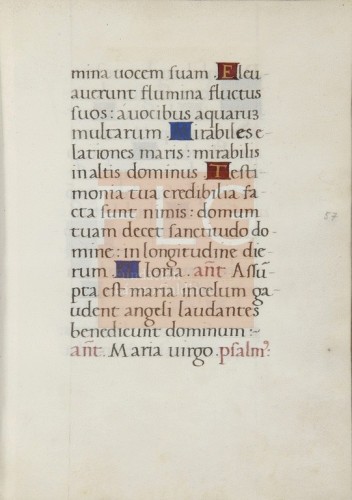 mina uocem suam. Eleu
auerunt flumina fluctus
suos: auocibus aquarū
multarum. Mirabiles e
lationes maris: mirabilis
in altis dominus. Testi
monia tua credibilia fa
cta sunt nimis: domum
tuam decet sanctitudo do
mine: in longitudine die
rum. Gloria. ant̄. Assū
pta est maria in celum ga
udent angeli laudantes
benedicunt dominum:~
ant̄. Maria uirgo. psalm⁹:
57